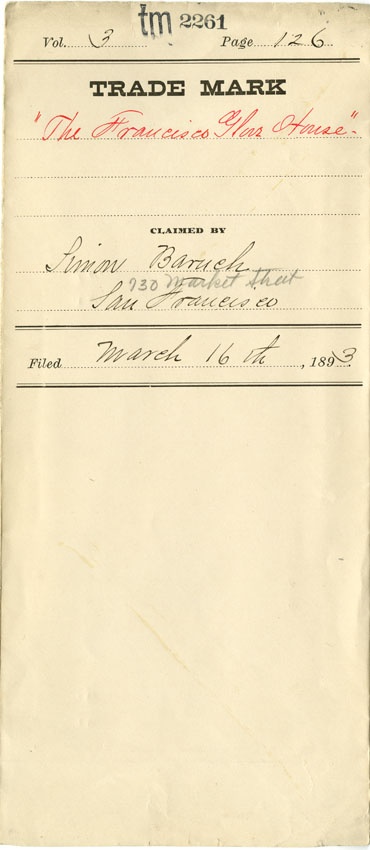 tm 2261
Vol. 3 Page 126
TRADE MARK
"The Francisco Glove House".
CLAIMED BY
Simon Baruch
730 Market Street
San Francisco
Filed March 16th, 1893